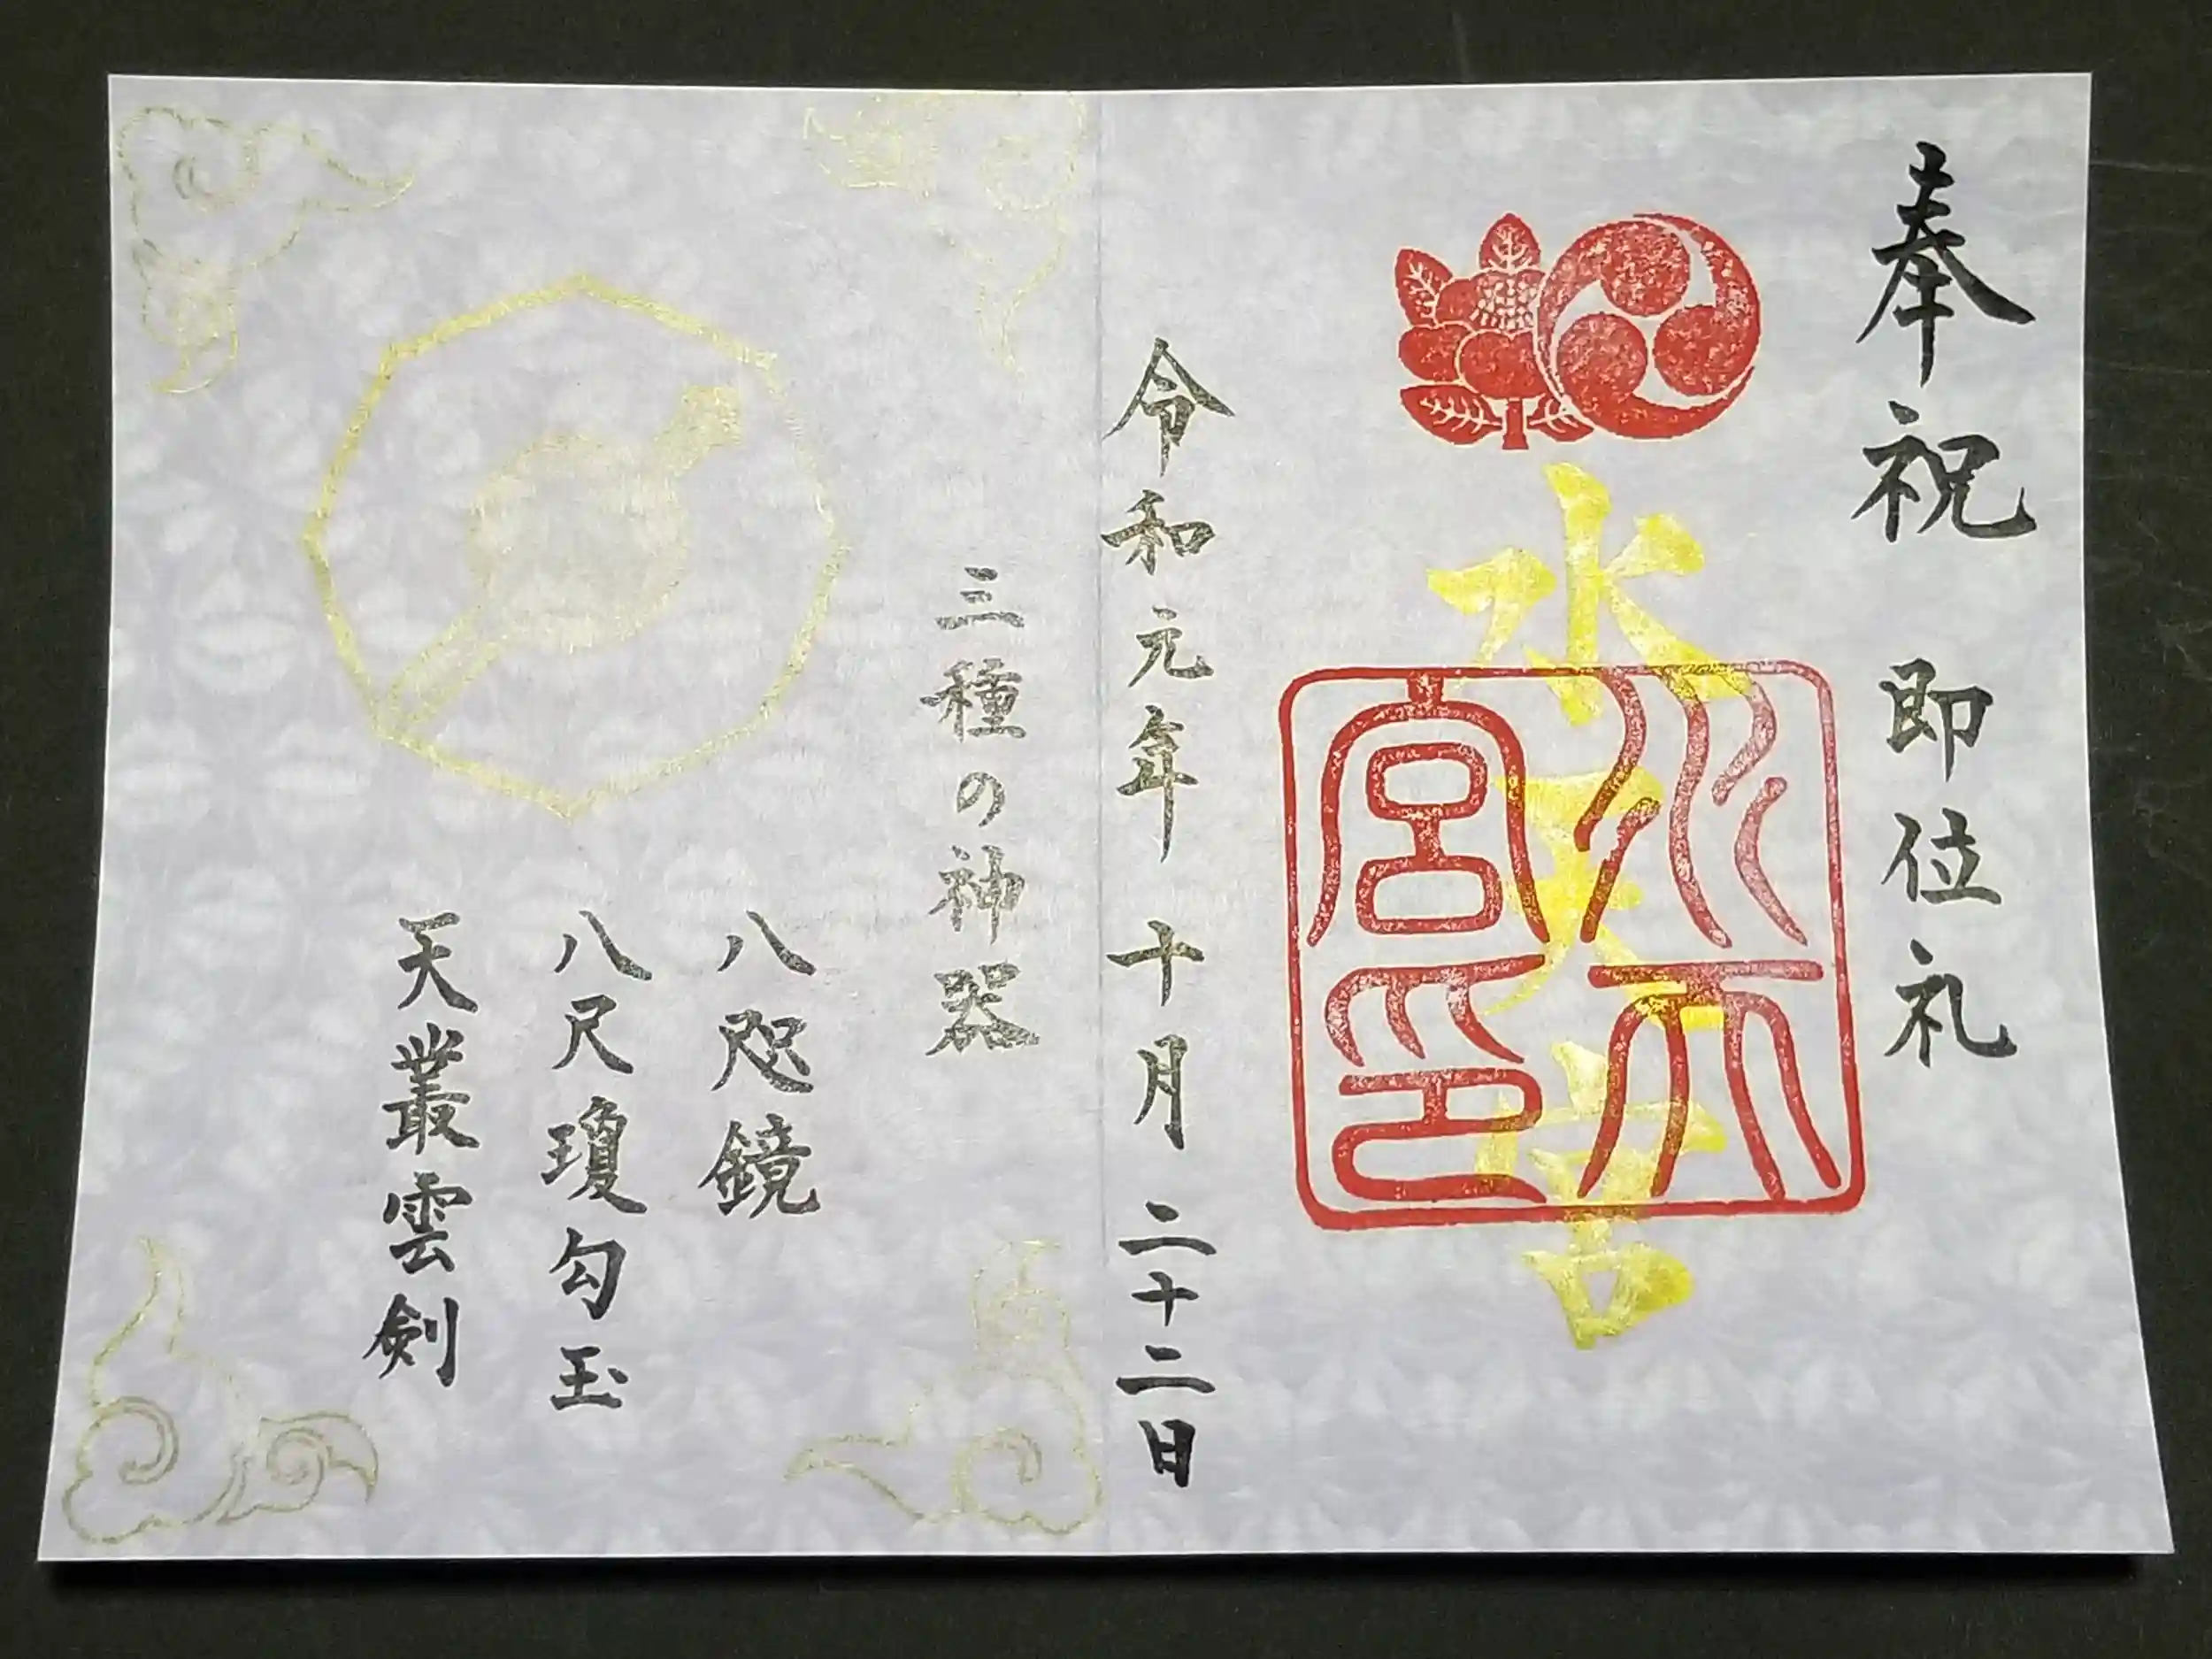 奉祝 即位礼
水天宮
水天宮印
令和元年 十月 二十二日
三種の神器
八咫鏡
八尺瓊勾玉
天叢雲剣